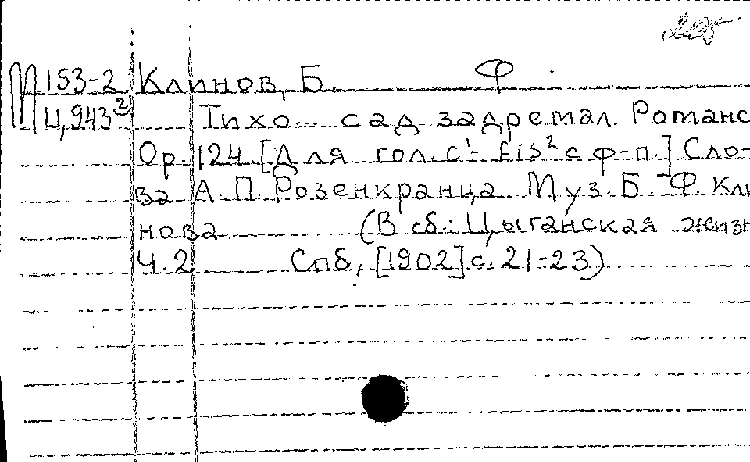 М153-2 Клинов, Б. Ф.
Ц,943² Тихо сад задремал. Романс
Op. 124 [Для гол. c¹-fis² с ф-п.] Сло-
ва А. П. Розенкранца. Муз. Б. Ф. Кли
нова (В сб.: Цыганская жизн
Ч. 2 Спб, [1902] с. 21-23)